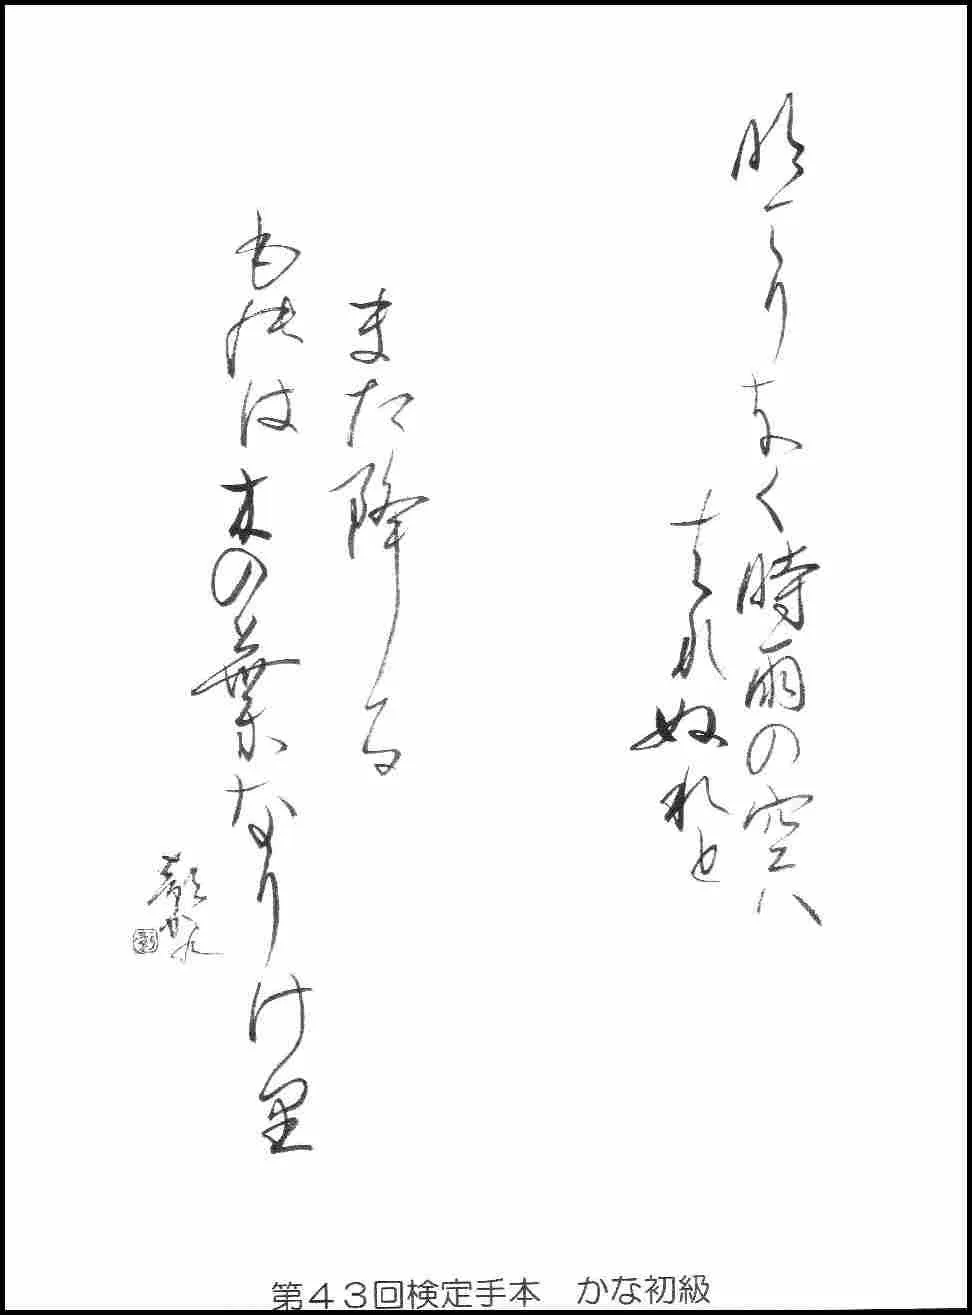 那こりなく時雨の空ハ
はれぬれと
また降る
も能は木の葉なりけ里
第４３回検定手本　かな初級